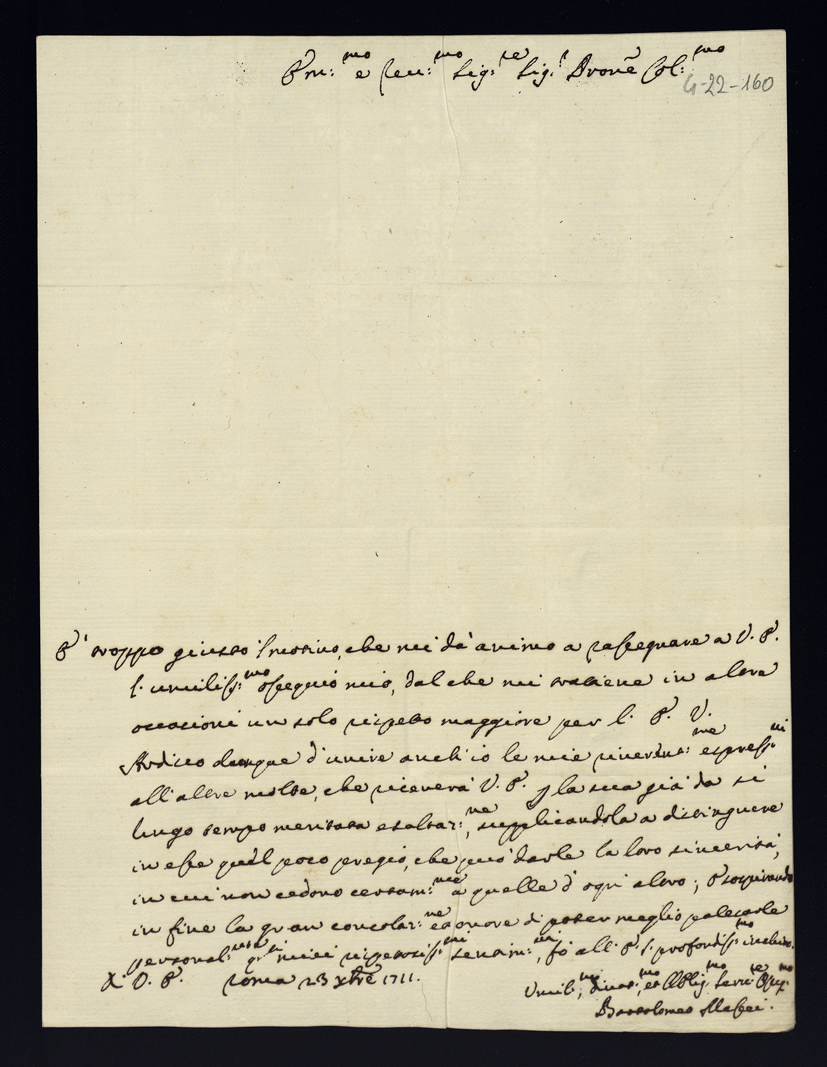 Em:mo e Reu:mo Sig:re Sig:r Pronē Col:mo
G-22-160
E' troppo giusto 'l motivo, che mi dà animo a rassegnare a V. E.
l'umiliss:mo ossequio mio, dal che mi ratiene in altre
occasioni un solo rispetto maggiore per l' E. V.
Ardisco dunque d'unire anch'io le mie riverēn: espress:ni
all'altre molte, che riceverà V. E. p la sua già da sì
lungo tempo meritata esaltaz:ne, supplicandola a distinguere
in esse quel poco pregio, che può darle la loro sincerità,
in cui non cedono certam:nte a quelle d'ogn'altro; E sospirando
in fine la gran consolaz:ne e onore di poter meglio palesarle
personal:nte q.sti miei rispettosiss:mi sentim:ti, fò all' E. S. profondiss:mo inchino.
Di V. E. Roma 23 Xbrē 1711.
Umil:mo, divot:mo, et Obblig:mo Serv:re Osseq:mo
Bartolomeo Massei.